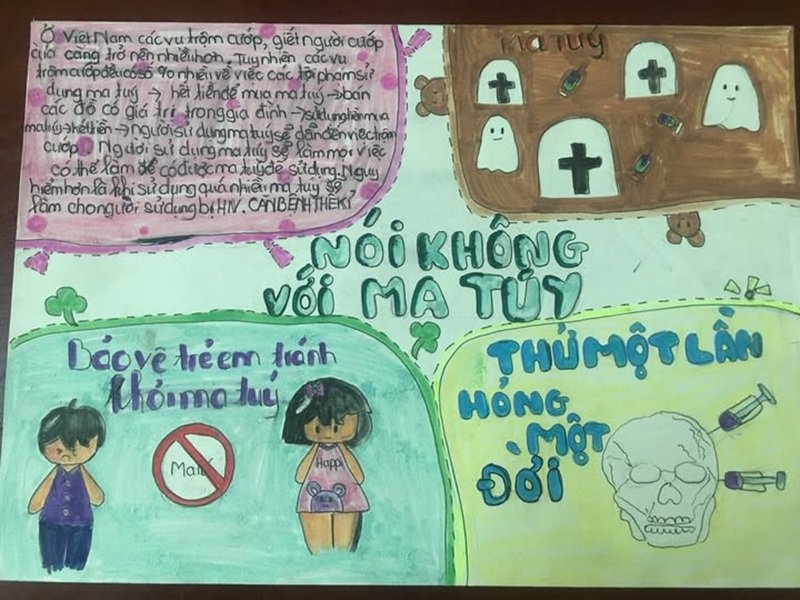 Ở Việt Nam các vụ trộm cướp, giết người cướp
của càng trở nên nhiều hơn. Tuy nhiên các vụ
trộm cướp đều có số 90 nhiều về việc các tội phạm sử
dụng ma tuý → hết tiền để mua ma tuý → bán
các đồ có giá trị trong gia đình → sử dụng tiền mua
ma tuý → hết tiền → người sử dụng ma tuý sẽ dẫn đến việc trộm
cướp. Người sử dụng ma tuý sẽ làm mọi việc
có thể làm để có được ma tuý để sử dụng. Nguy
hiểm hơn là khi sử dụng quá nhiều ma túy sẽ
làm cho người sử dụng bị HIV. CĂN BỆNH THẾ KỈ
MA TUÝ
NÓI KHÔNG
VỚI MA TÚY
Bảo vệ trẻ em tránh
khỏi ma tuý
Ma
Happi
THỬ MỘT LẦN
HỎNG
MỘT
ĐỜI